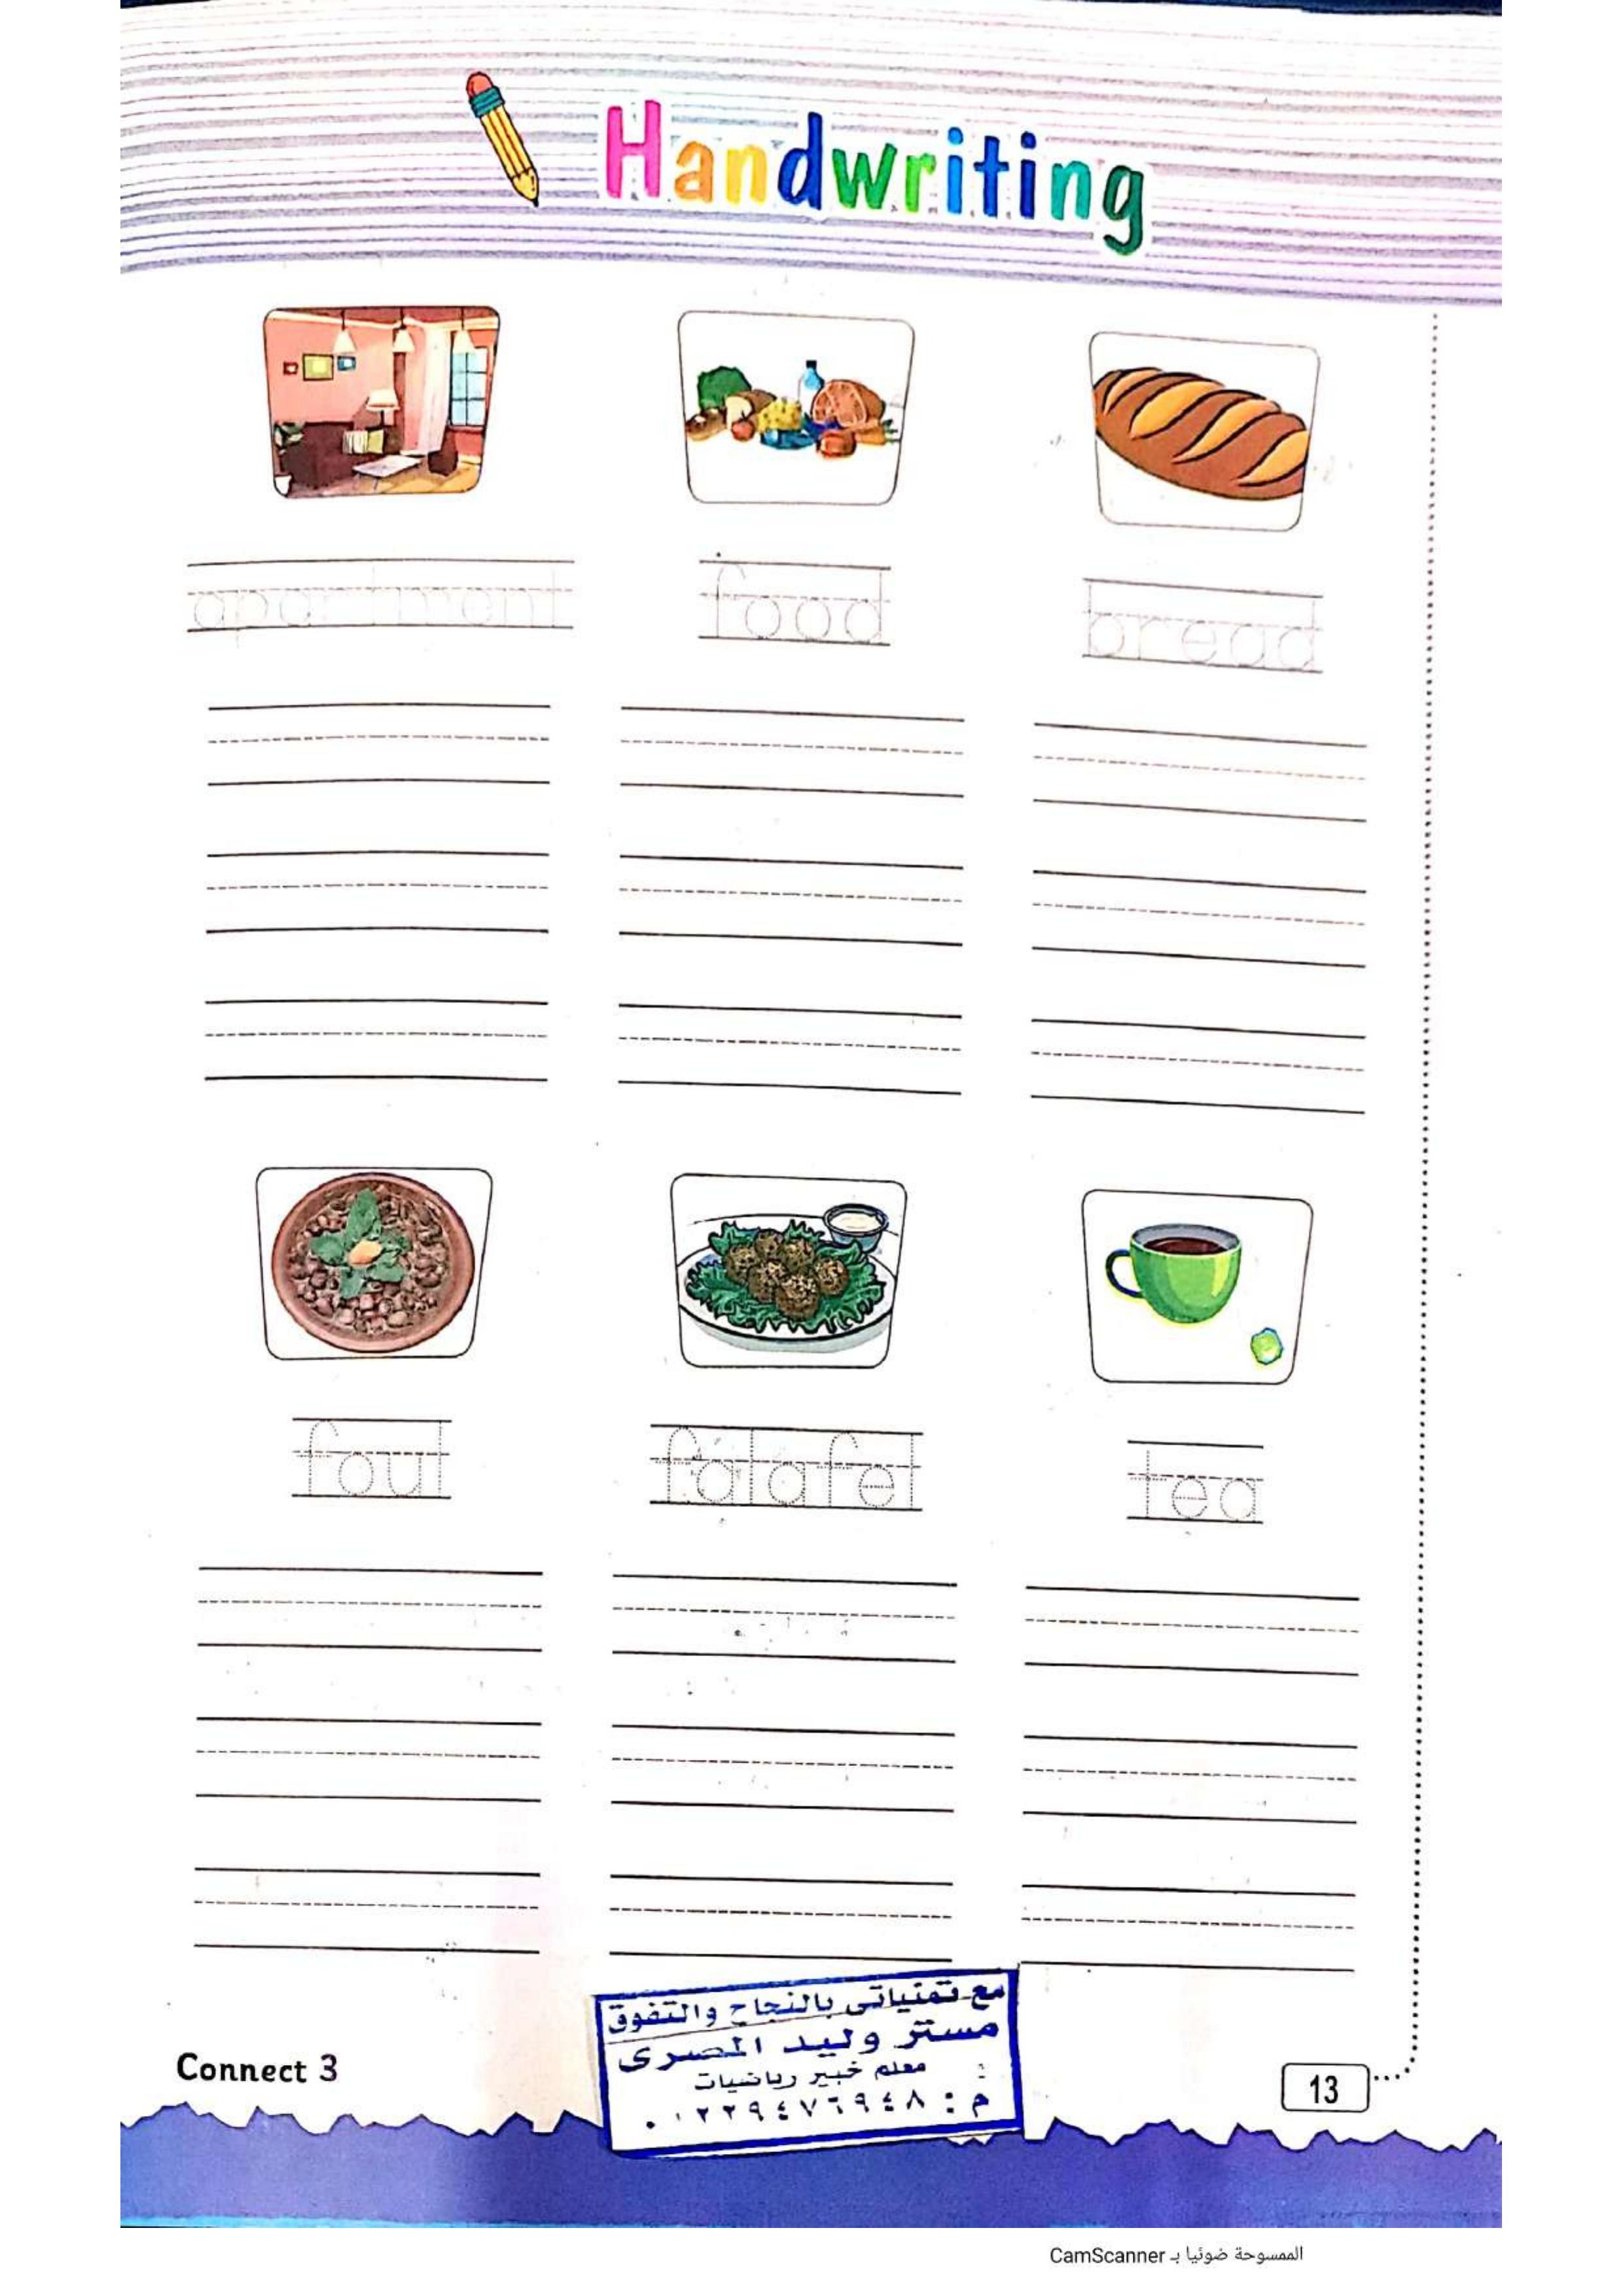 Handwriting
apartment
food
bread
foul
falafel
tea
مع تمنياتى بالنجاح والتفوق
مستر وليد المصرى
معلم خبير رياضيات
م : ٠١٢٢٩٤٧٦٩٤٨
Connect 3
13
الممسوحة ضوئيا بـ CamScanner